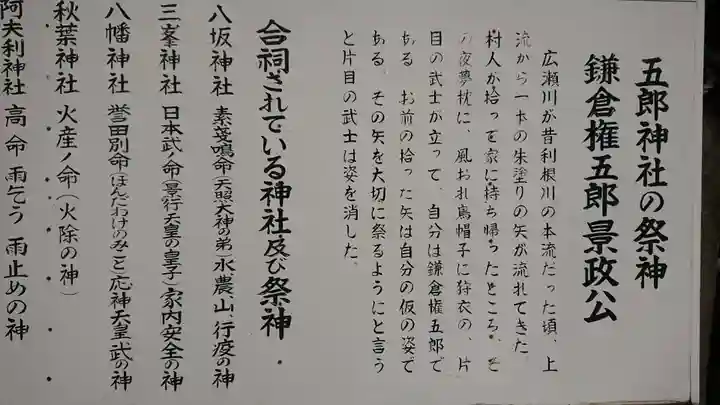 五郎神社の祭神
鎌倉権五郎景政公
広瀬川が昔利根川の本流だった頃、上
流から一本の朱塗りの矢が流れてきた
村人が拾って家に持ち帰ったところ、そ
の夜夢枕に、風おれ烏帽子に狩衣の、片
目の武士が立って、自分は鎌倉権五郎で
ある、お前の拾った矢は自分の仮の姿で
ある、その矢を大切に祭るようにと言う
と片目の武士は姿を消した。
合祠されている神社及び祭神
八坂神社 素戔鳴命(天照大神の弟)水農、山、行疫の神
三峯神社 日本武ノ命(景行天皇の皇子)家内安全の神
八幡神社 誉田別命(ほんだわけのみこと)応神天皇武の神
秋葉神社 火産ノ命(火除の神)
阿夫利神社 高 命 雨乞う 雨止めの神